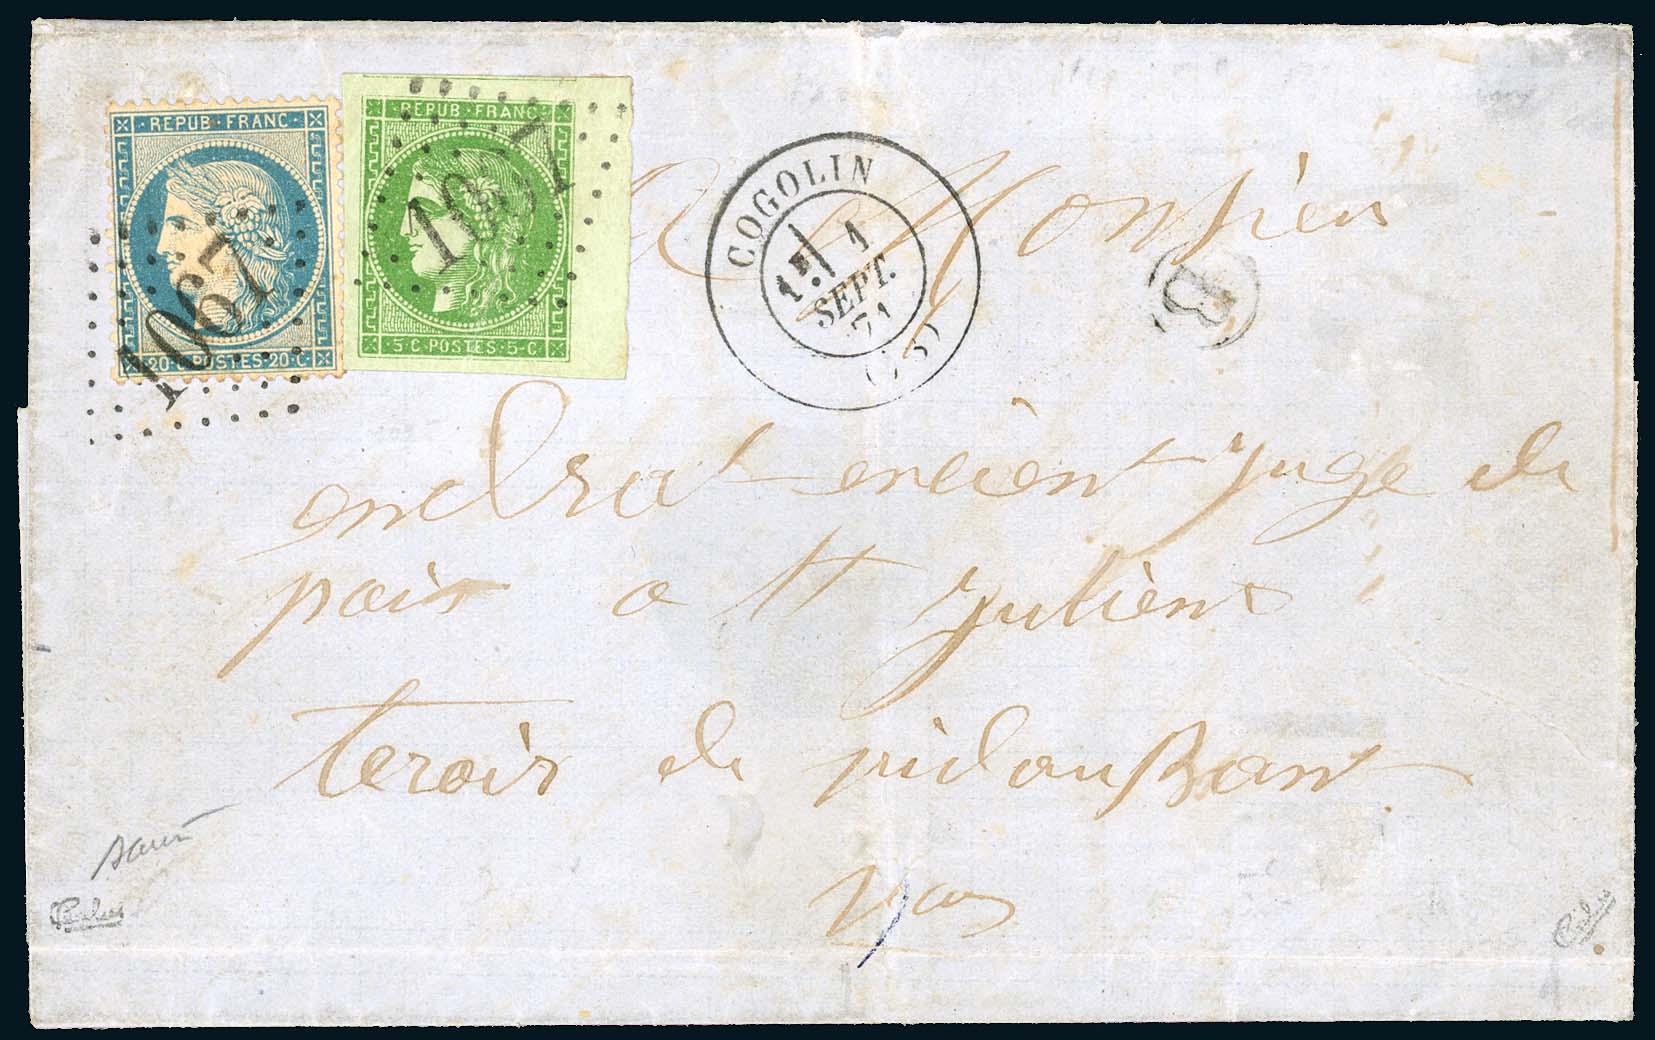 REPUB · FRANC ·
20 · C · POSTES · 20 · C ·
1067
REPUB · FRANC ·
5 · C · POSTES · 5 · C
1067
COGOLIN
1E
1
SEPT.
71
B
A Monsieur
juge de
pair a St julient
teroir de vidauBant
Var